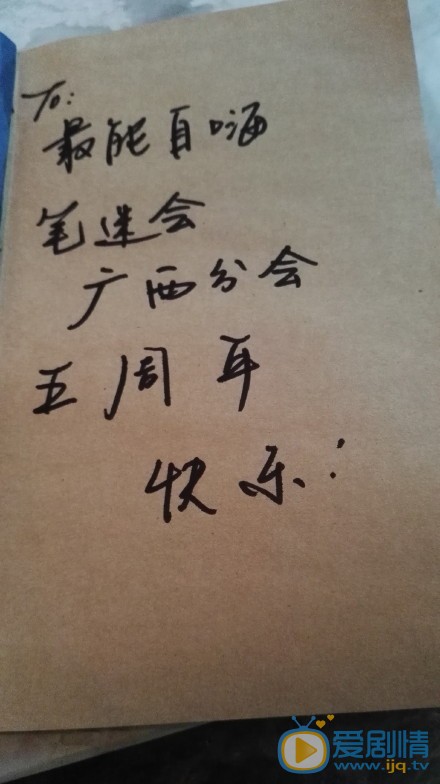 To:
最能自嗨
笔迷会
广西分会
五周年
快乐!
爱剧情
www.ijq.tv